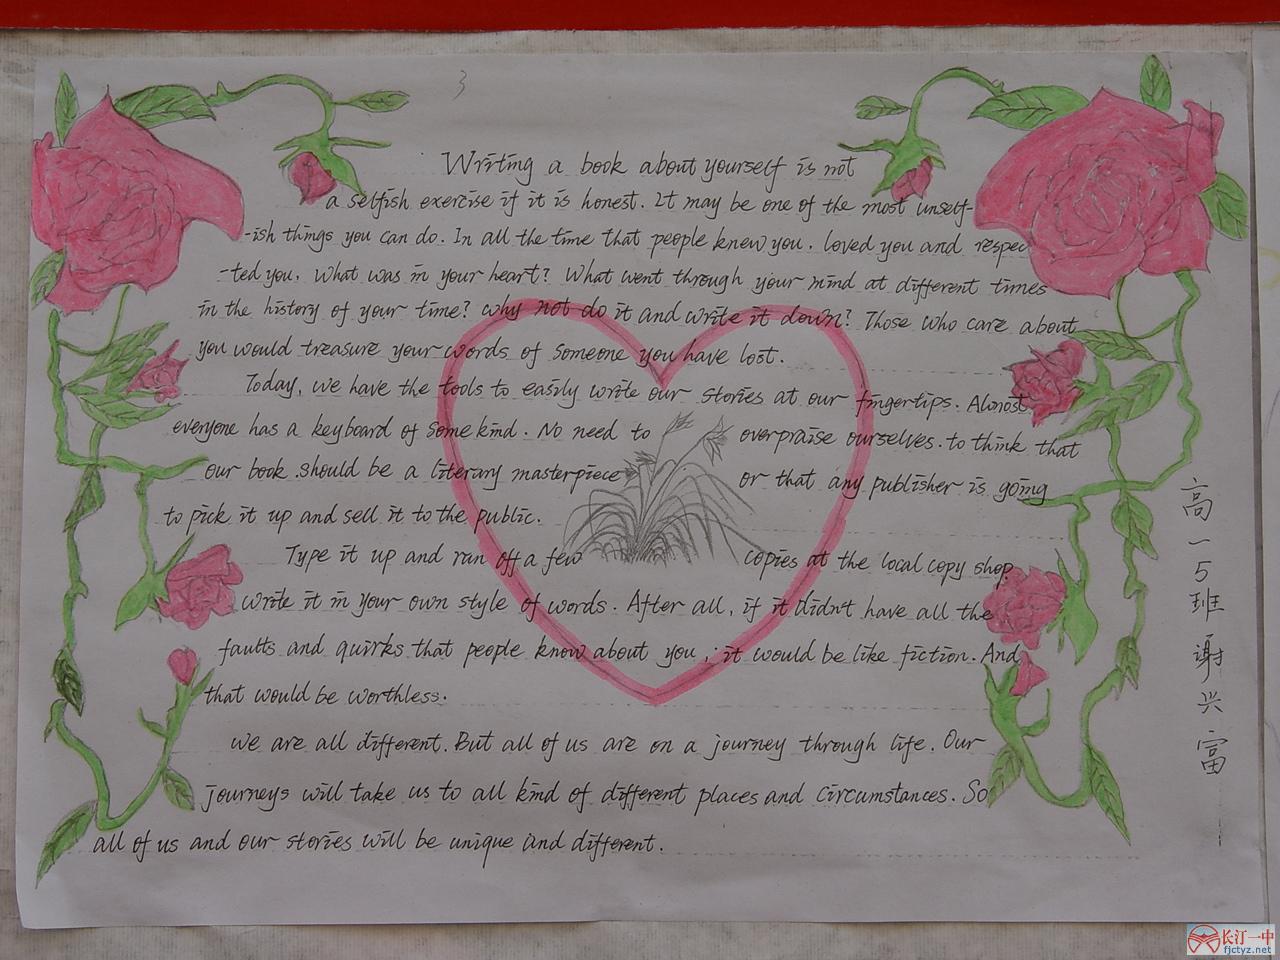 3
Writing a book about yourself is not
a selfish exercise if it is honest. It may be one of the most unself-
-ish things you can do. In all the time that people knew you. loved you and respec
-ted you. What was in your heart? What went through your mind at different times
in the history of your time? why not do it and write it down? Those who care about
you would treasure your words of someone you have lost.
Today, we have the tools to easily write our stories at our fingertips. Almost
everyone has a keyboard of some kind. No need to overpraise ourselves. to think that
our book should be a literary masterpiece or that any publisher is going
to pick it up and sell it to the public.
Type it up and run off a few copies at the local copy shop.
write it in your own style of words. After all, if it didn't have all the
faults and quirks that people know about you, it would be like fiction. And
that would be worthless.
We are all different. But all of us are on a journey through life. Our
journeys will take us to all kind of different places and circumstances. So
all of us and our stories will be unique and different.
高一5班谢兴富
长汀一中
fjctyz.net